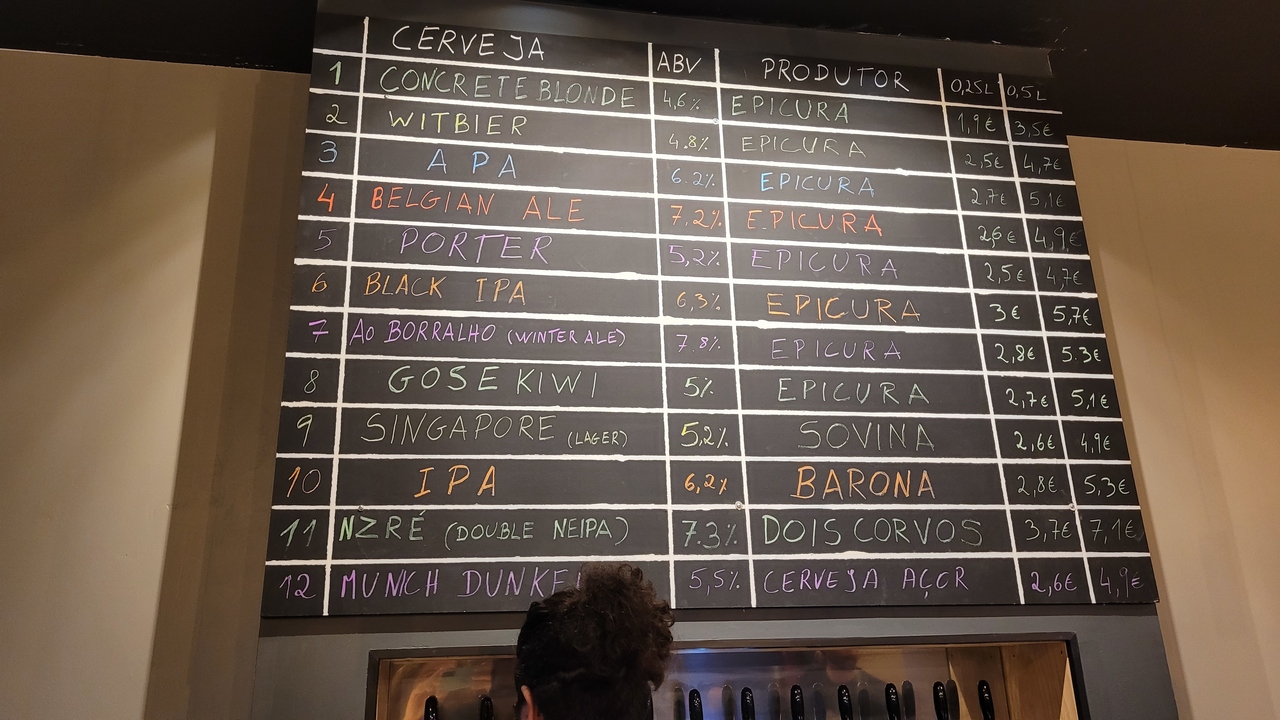 CERVEJA ABV PRODUTOR 0,25L 0,5L
1 CONCRETE BLONDE 4,6% EPICURA 1,9€ 3,5€
2 WITBIER 4.8% EPICURA 2,5€ 4,7€
3 APA 6.2% EPICURA 2,7€ 5,1€
4 BELGIAN ALE 7,2% EPICURA 2,6€ 4,9€
5 PORTER 5,2% EPICURA 2,5€ 4,7€
6 BLACK IPA 6,3% EPICURA 3€ 5,7€
7 Ao BORRALHO (WINTER ALE) 7.8% EPICURA 2,8€ 5.3€
8 GOSE KIWI 5% EPICURA 2,7€ 5,1€
9 SINGAPORE (LAGER) 5,2% SOVINA 2,6€ 4,9€
10 IPA 6,2% BARONA 2,8€ 5,3€
11 NZRÉ (DOUBLE NEIPA) 7.3% DOIS CORVOS 3,7€ 7,1€
12 MUNICH 5,5% CERVEJA AÇOR 2,6€ 4,9€